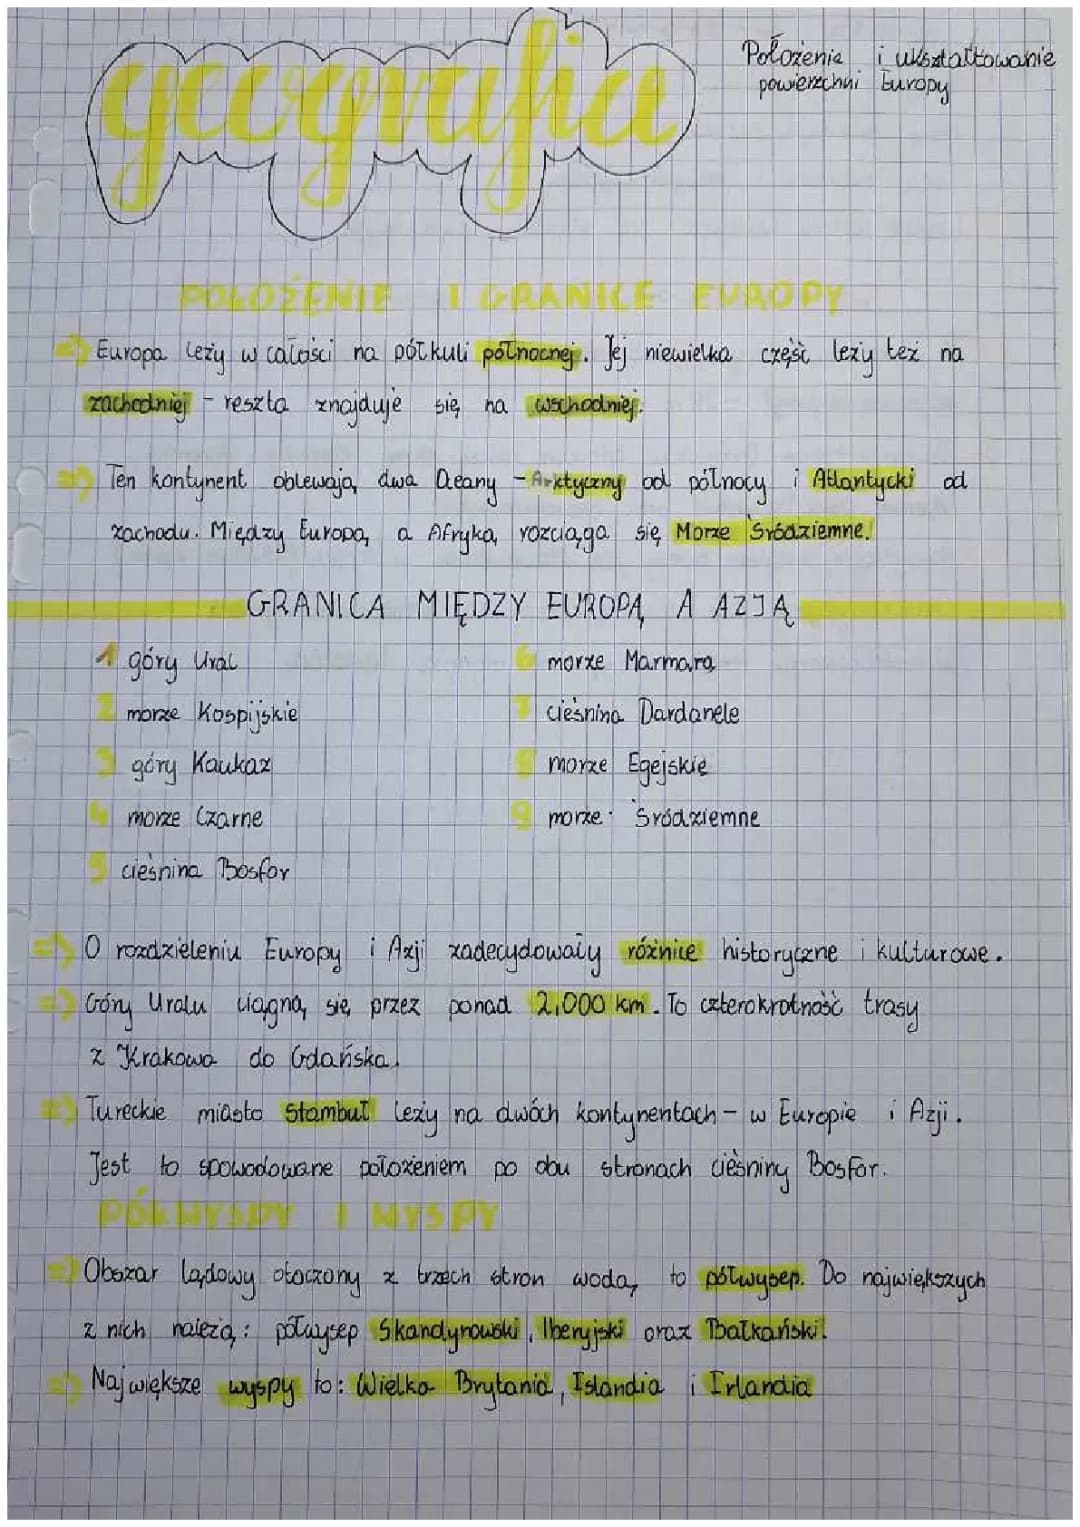 geografia
Położenie i ukształtowanie
powierzchni Europy
POŁOŻENIE I GRANICE EUROPY
=> Europa leży w całości na półkuli północnej. Jej niewielka część leży też na
zachodniej - reszta znajduje się na wschodniej.
=> Ten kontynent oblewają dwa Oceany - Arktyczny od północy i Atlantycki od
zachodu. Między Europą a Afryką rozciąga się Morze Śródziemne.
GRANICA MIĘDZY EUROPĄ A AZJĄ
1 góry Ural
2 morze Kaspijskie
3 góry Kaukaz
4 morze Czarne
5 cieśnina Bosfor
6 morze Marmara
7 cieśnina Dardanele
8 morze Egejskie
9 morze Śródziemne
=> O rozdzieleniu Europy i Azji zadecydowały różnice historyczne i kulturowe.
=> Góry Uralu ciągną się przez ponad 2.000 km. To czterokrotność trasy
z Krakowa do Gdańska.
=> Tureckie miasto Stambuł leży na dwóch kontynentach - w Europie i Azji.
Jest to spowodowane położeniem po obu stronach cieśniny Bosfor.
PÓŁWYSPY I WYSPY
=> Obszar lądowy otoczony z trzech stron wodą to półwysep. Do największych
z nich należą: półwysep Skandynowski, Iberyjski oraz Bałkański.
=> Największe wyspy to: Wielka Brytania, Islandia i Irlandia